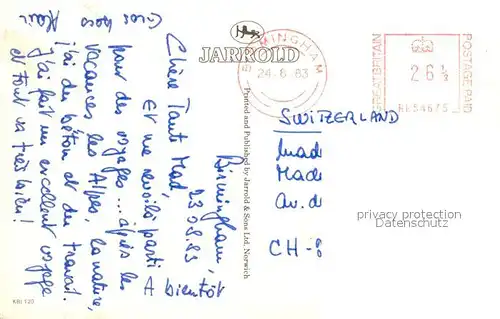 Birmingham,
23.08.83
Chère Tante Mad,
Et me revoilà parti
pour des voyages... après les
vacances les Alpes, la nature,
j'ai du béton et du travail.
J'ai fait un excellent voyage
et tout va très bien!
A bientôt
Gros bous
Alain
JARROLD
Printed and Published by Jarrold & Sons Ltd, Norwich
KBI 120
MINGHAM
24-8-83
GREAT BRITAIN
26½
POSTAGE PAID
SWITZERLAND
Mad
Av. d
CH-
privacy protection
Datenschutz